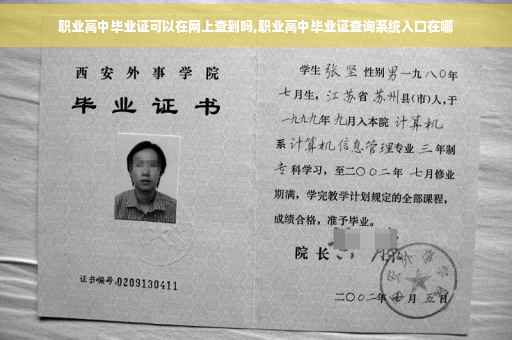 职业高中毕业证可以在网上查到吗,职业高中毕业证查询系统入口在哪
西安外事学院
毕业证书
证书编号:0209130411
学生 张坚 性别 男 一九八〇年
七月生, 江苏省 苏州县(市)人,于
一九九九年 九月入本院 计算机
系 计算机信息管理专业 三 年制
专科学习,至二〇〇二年 七月修业
期满,学完教学计划规定的全部课程,
成绩合格,准予毕业。
院长
二〇〇二年 月 五日